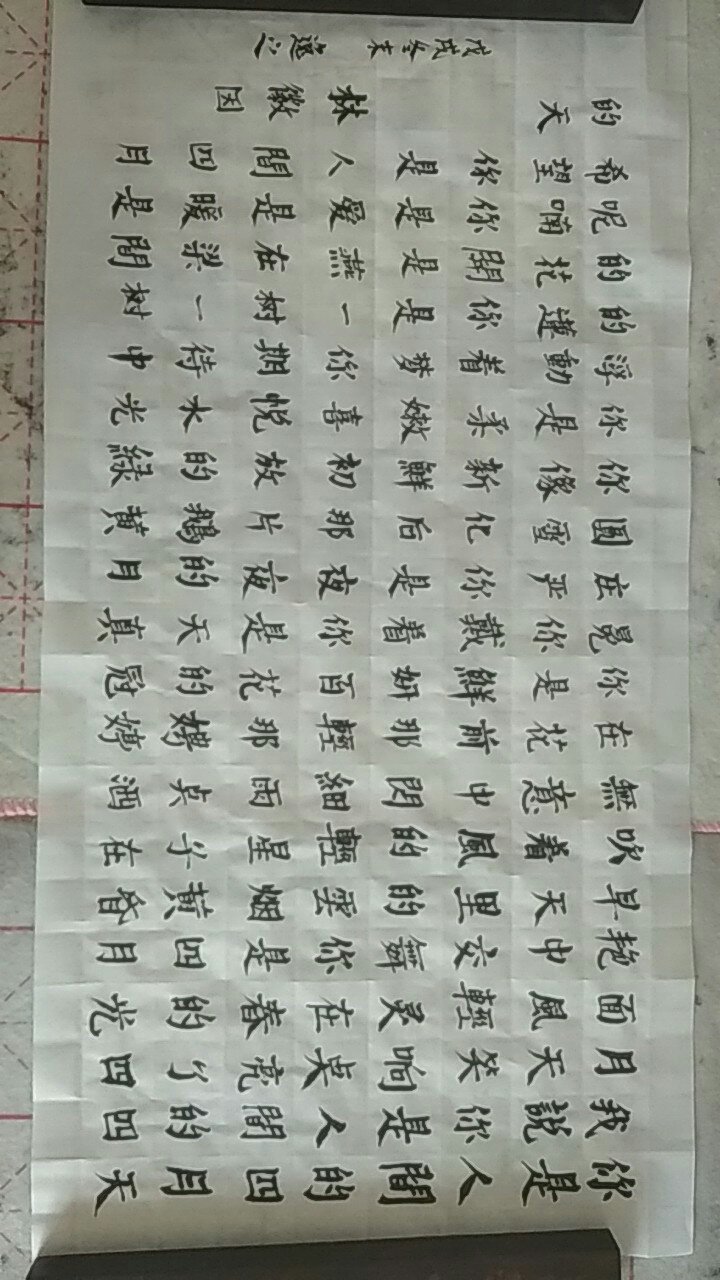 你是人間的四月天
我說你是人間的四
月天笑响点亮了四
面風輕灵在春的光
艳中交舞你是四月
早天里的雲烟黄昏
吹着風的輕星子在
無意中閃細雨点洒
在花前那輕那娉婷
你是鮮妍百花的冠
冕你戴着你是天真
庄严你是夜夜的月
圓雪化后那片鵝黄
你像新鮮初放的綠
你是柔嫩喜悅水光
浮動着梦你期待中
的蓮你是一树一树
的花開是燕在梁間
呢喃你是愛是暖是
希望你是人間四月
的天 林徽因
戊戌冬末